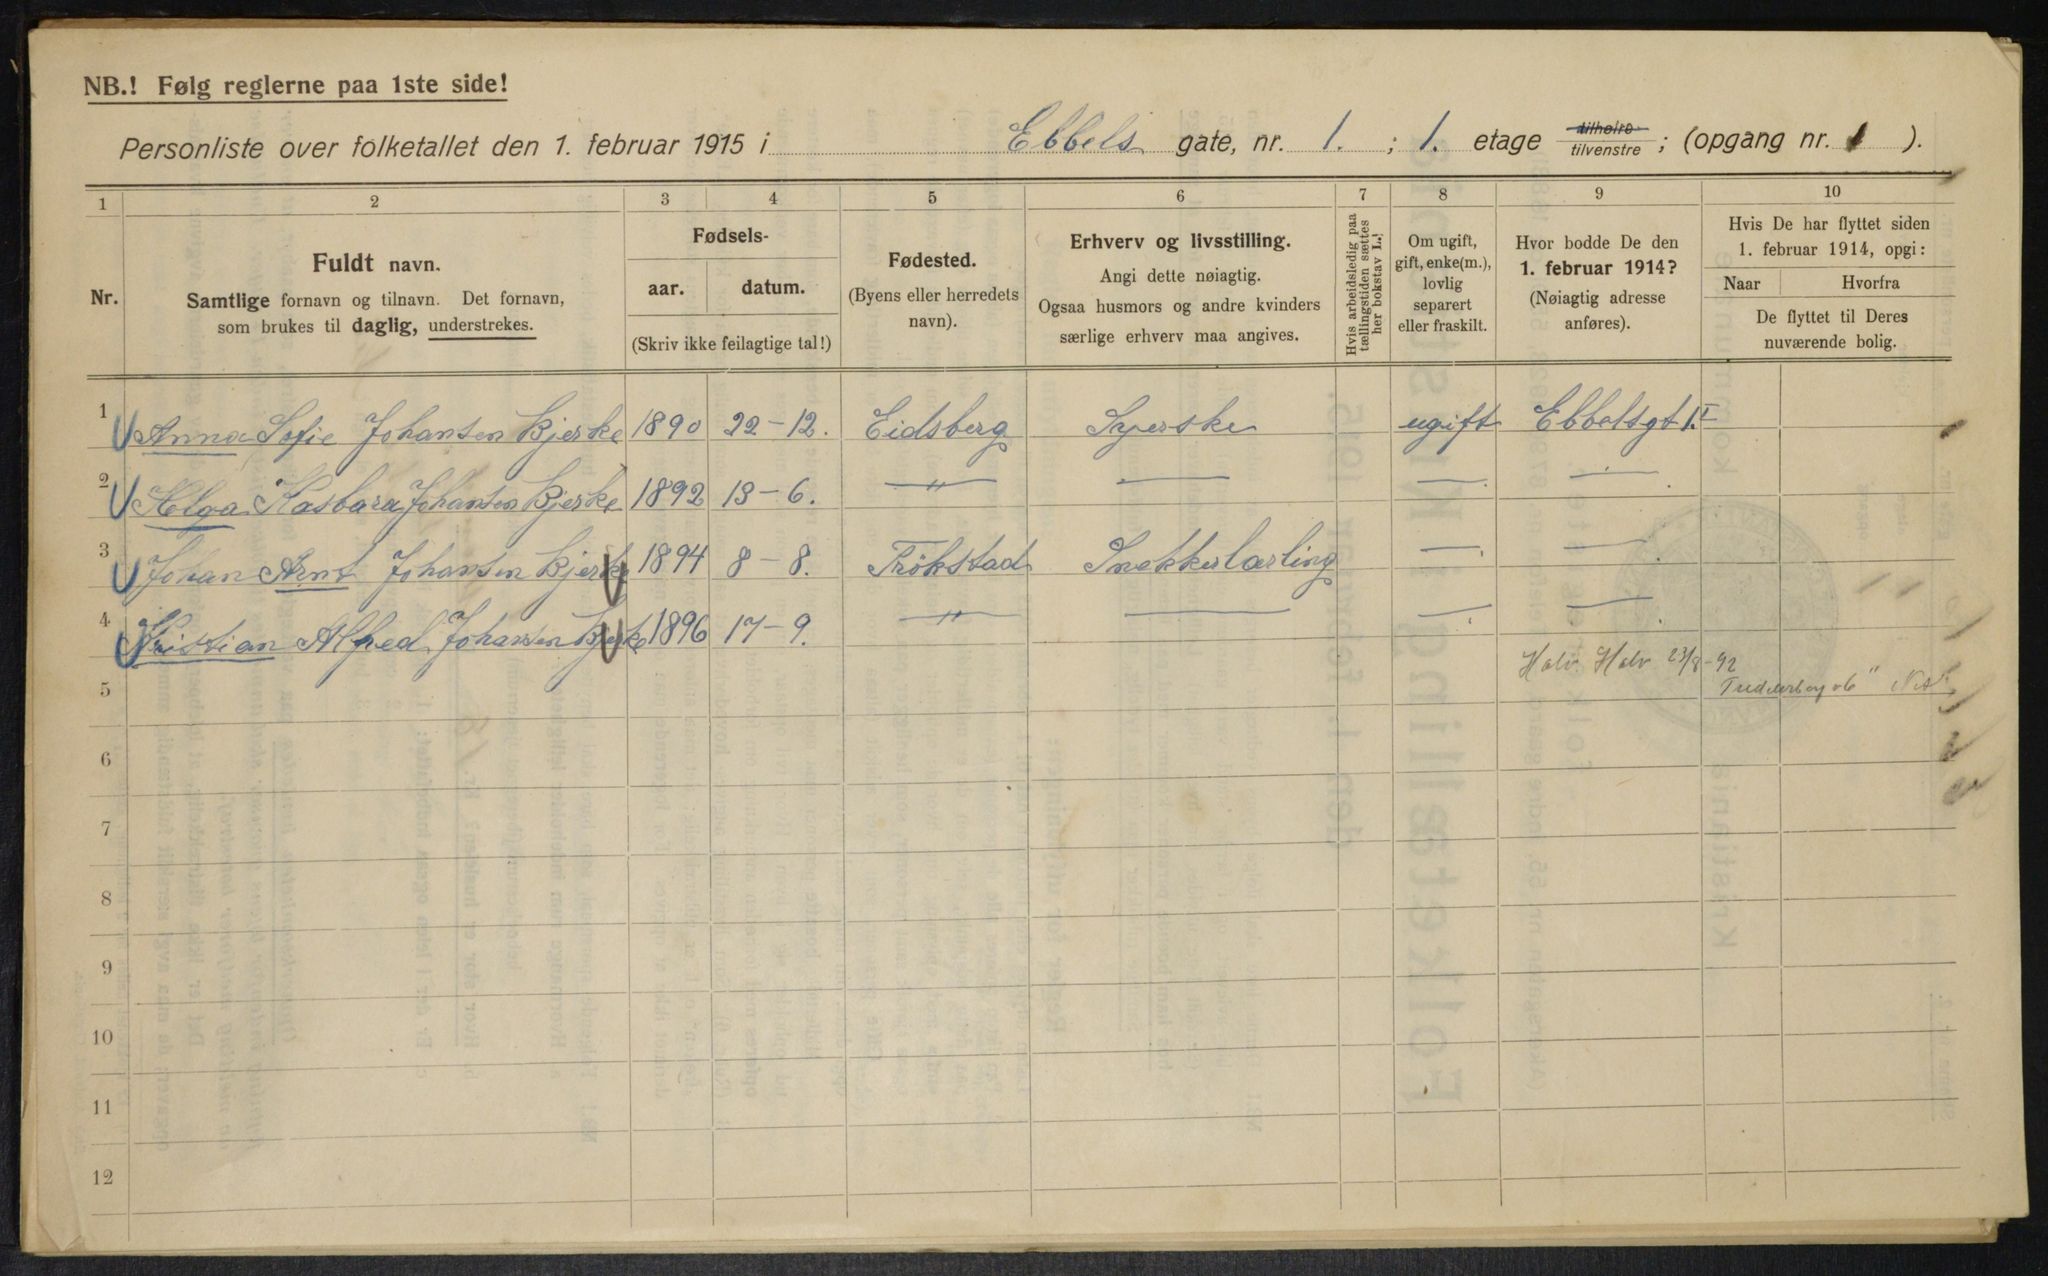 NB.! Følg reglerne paa 1ste side!
Personliste over folketallet den 1. februar 1915 i Ebbels gate, nr. 1. ; 1. etage tilhøire tilvenstre ; (opgang nr. 1 ).
1 2 3 4 5 6 7 8 9 10
Nr.
Fuldt navn.
Samtlige fornavn og tilnavn. Det fornavn,
som brukes til daglig, understrekes.
Fødsels-
aar. datum.
(Skriv ikke feilagtige tal!)
Fødested.
(Byens eller herredets
navn).
Erhverv og livsstilling.
Angi dette nøiagtig.
Ogsaa husmors og andre kvinders
særlige erhverv maa angives.
Hvis arbeidsledig paa
tællingstiden sættes
her bokstav L.!
Om ugift,
gift, enke(m.),
lovlig
separert
eller fraskilt.
Hvor bodde De den
1. februar 1914?
(Nøiagtig adresse
anføres).
Hvis De har flyttet siden
1. februar 1914, opgi:
Naar Hvorfra
De flyttet til Deres
nuværende bolig.
1 Anna Sofie Johansen Bjerke 1890 22-12. Eidsberg Syerske ugift Ebbelsgt 1.I
2 Helga Kasbara Johansen Bjerke 1892 13-6. — " — — — —
3 Johan Arnt Johansen Bjerke 1894 8-8. Trökstad Snekkerlærling — —
4 Kristian Alfred Johansen Bjerke 1896 17-9. — " — — — —
Halv Halv 23/8-92
5
6
7
8
9
10
11
12